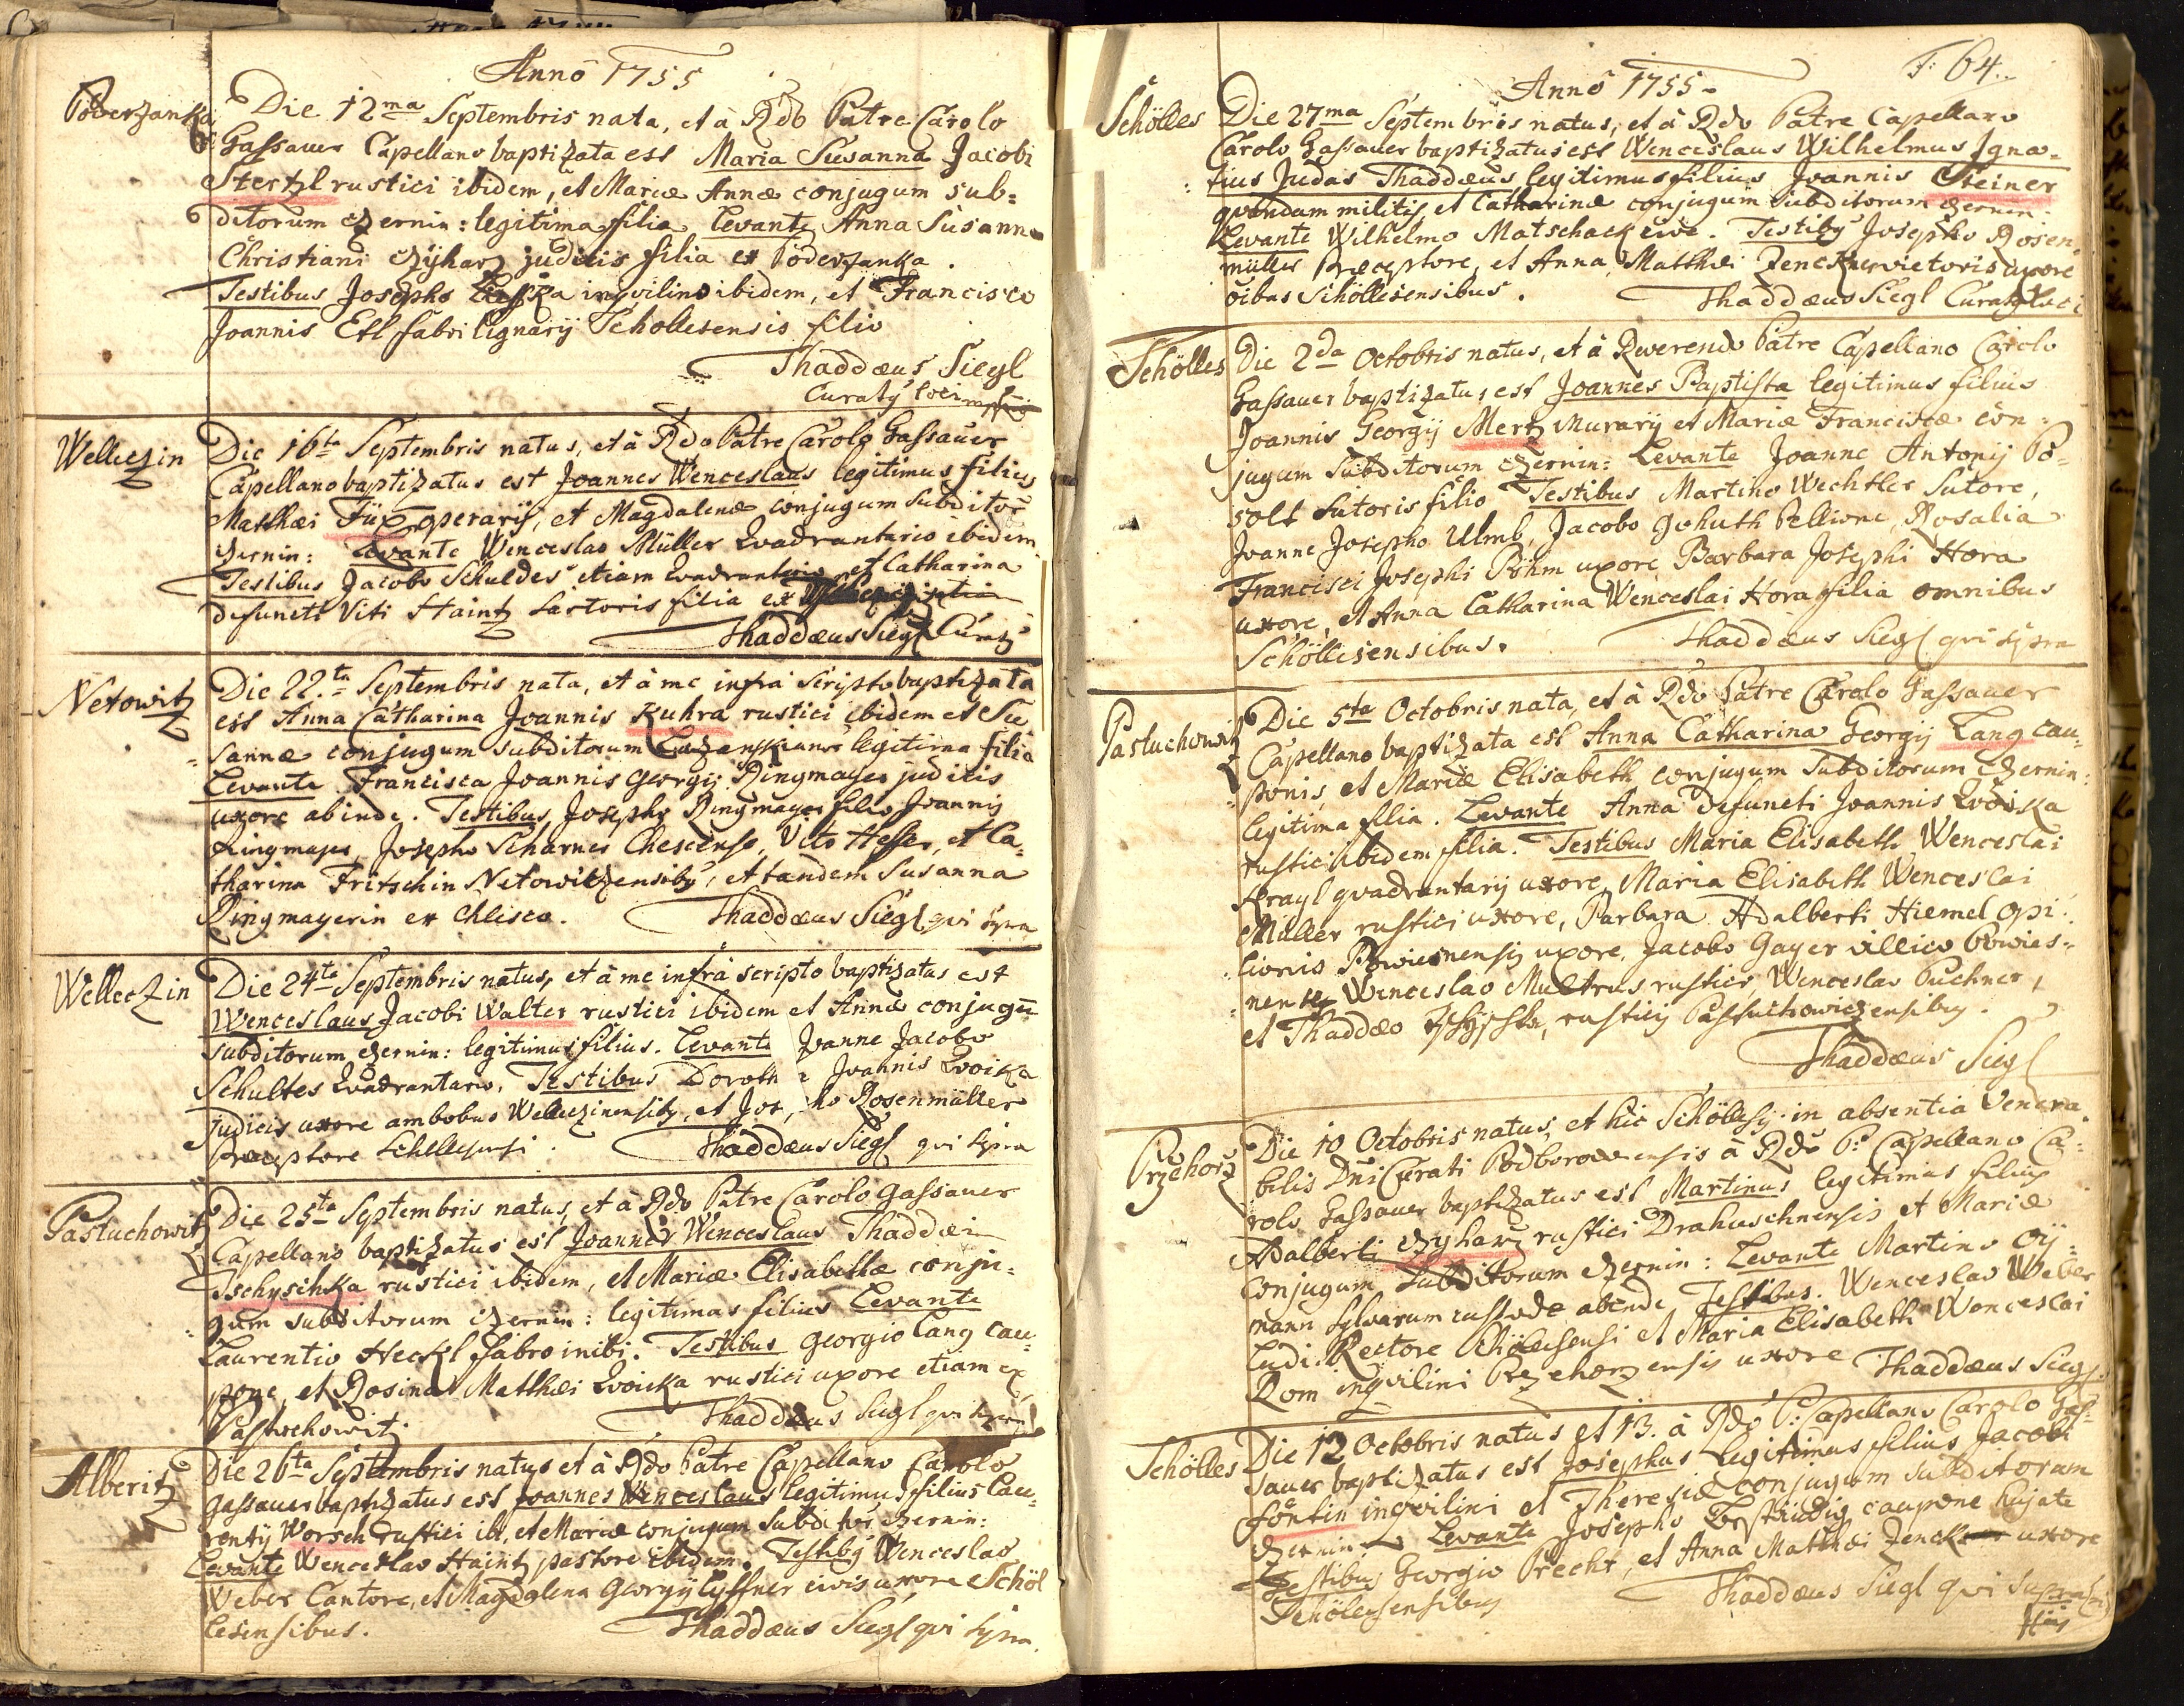 Anno 1755
Poderzanka
Die 12ma Septembris nata, et à Rdo Patre Carolo
Gassauer Capellano baptizata est Maria Susanna Jacobi
Stertzl rustici ibidem, et Mariæ Annæ conjugum sub=
ditorum Czernin: legitima filia Levante Anna Susanna
Christiani Czyharz judicis filia ex Poderzanka.
Testibus Josepho inqvilino ibidem, et Francisco
Joannis Etl fabri lignarij Schollesensis filio
Thaddæus Siegl
Curaty loci
Welleczin
Die 16ta Septembris natus, et à Rdo Patre Carolo Gassauer
Capellano baptizatus est Joannes Wenceslaus legitimus filius
Matthæi Füx operarij, et Magdalenæ conjugum Subditor
Czernin: Levante Wenceslao Müller Qvadrantario ibidem
Testibus Jacobo Schuldes etiam Qvadrantario et Catharina
defuncti Viti Staintz sartoris filia ex
Thaddæus Siegl Curaty
Netowitz
Die 22.ta Septembris nata, et à me infrà scripto baptizata
est Anna Catharina Joannis Kuhra rustici ibidem et Su
=sannæ conjugum subditorum legitima filia
Levante Francisca Joannis Georgij Ringmayer judicis
uxore abinde. Testibus Josepho Ringmayer filio Joannis
Ringmayer, Josepho Scharner Chescense, Vito Hesser, et Ca=
tharina Fritschin Netowitzensiby, et tandem Susanna
Ringmayerin ex Chlisca. Thaddæus Siegl qvi supra
Welleczin
Die 24ta Septembris natus, et à me infrà scripto baptizatus est
Wenceslaus Jacobi Walter rustici ibidem et Annæ conjugū
subditorum Czernin: legitimus filius. Levante Joanne Jacobo
Schultes Qvadrantario, Testibus Doroth Joannis Qvoika
judicis uxore ambobus Welleczinensiby, et Jos pho Rosenmüller
Præceptore Schellesensi. Thaddæus Siegl qvi supra
Pastuchowitz
Die 25ta Septembris natus, et à Rdo Patre Carolo Gassauer
Capellano baptizatus est Joannes Wenceslaus Thaddæi
Tschyschka rustici ibidem, et Mariæ Elisabethæ conju=
gum subditorum Czernin: legitimus filius Levante
Laurentio Heckl fabro inibi. Testibus Georgio Lang cau=
pone, et Rosina Matthæi Qvoicka rustici uxore etiam ex
Pastuchowitz Thaddæus Siegl qvi supra
Alberitz
Die 26ta Septembris natus et à Rdo Patre Capellano Carolo
Gassauer baptizatus est Joannes Wenceslaus legitimus filius Lau=
rentij Worsch rustici ibi, et Mariæ conjugum Subditor Czernin:
Levante Wenceslao Staintz pastore ibidem. Testiby Wenceslao
Weber Cantore, et Magdalena Georgij Lyssner civis uxore Schöl
lesensibus. Thaddæus Siegl qvi supra.
F: 64.
Anno 1755
Schölles
Die 27ma Septembris natus, et à Rdo Patre Capellano
Carolo Gassauer baptizatus est Wenceslaus Wilhelmus Igna=
tius Judas Thaddæus legitimus filius Joannis Steiner
qvondam militis, et Catharinæ conjugum subditorum Czernin:
Levante Wilhelmo Matschack cive. Testiby Josepho Rosen=
müller Præceptore, et Anna Matthæi Zenckner vietoris uxore
oibus Schöllesensibus. Thaddæus Siegl Curaty loci
Schölles
Die 2da Octobris natus, et à Reverendo Patre Capellano Carolo
Gassauer baptizatus est Joannes Baptista legitimus filius
Joannis Georgij Mertz Murarij et Mariæ Franciscæ con=
jugum Subditorum Czernin: Levante Joanne Antonij Po=
solt Sutoris filio Testibus Martino Wechtler Sutore,
Joanne Josepho Ulmb, Jacobo Gohuth Pellione, Rosalia
Francisci Josephi Böhm uxore, Barbara Josephi Hora
uxore, et Anna Catharina Wenceslai Hora filia omnibus
Schöllesensibus. Thaddæus Siegl qvi supra
Pastuchowitz
Die 5ta Octobris nata, et à Rdo Patre Carolo Gassauer
Capellano baptizata est Anna Catharina Georgij Lang cau=
ponis, et Mariæ Elisabeth conjugum Subditorum Czernin:
legitima filia. Levante Anna defuncti Joannis Qvoicka
rustici ibidem filia. Testibus Maria Elisabeth Wenceslai
Strayl qvadrantarij uxore, Maria Elisabeth Wenceslai
Müller rustici uxore, Barbara Adalberti Hiemel Opi=
lionis Powiesnensis uxore, Jacobo Gayer villico Powies=
nensi, Wenceslao Multrus rustico, Wenceslao Puchner,
et Thaddæo rusticis Pastuchowiczensiby.
Thaddæus Siegl
Przehorz
Die 10 Octobris natus, et hic Schöllesy in absentia Venera=
bilis Dni Curati Podborowensis à Rdo P: Capellano Ca=
rolo Gassauer baptizatus est Martinus legitimus filius
Adalberti Czyharz rustici Drahuschnensis et Mariæ
conjugum Subditorum Czernin: Levante Martino Oij=
mann Sylvarum custode abinde Testibus. Wenceslao Weber
Ludi Rectore Schölesensi et Maria Elisabeth Wenceslai
Rom inqvilini Przehorzensis uxore Thaddæus Siegl
Schölles
Die 12 Octobris natus et 13. à Rdo P: Capellano Carolo Gas=
sauer baptizatus est Josephus Legitimus filius Jacobi
fontin inqvilini et Theresiæ conjugum subditorum
Czernin Levante Josepho Beständig caupone hujate
Testibus Georgio Precht, et Anna Matthæi Zenck uxore
Schölesensibus Thaddæus Siegl qvi supra